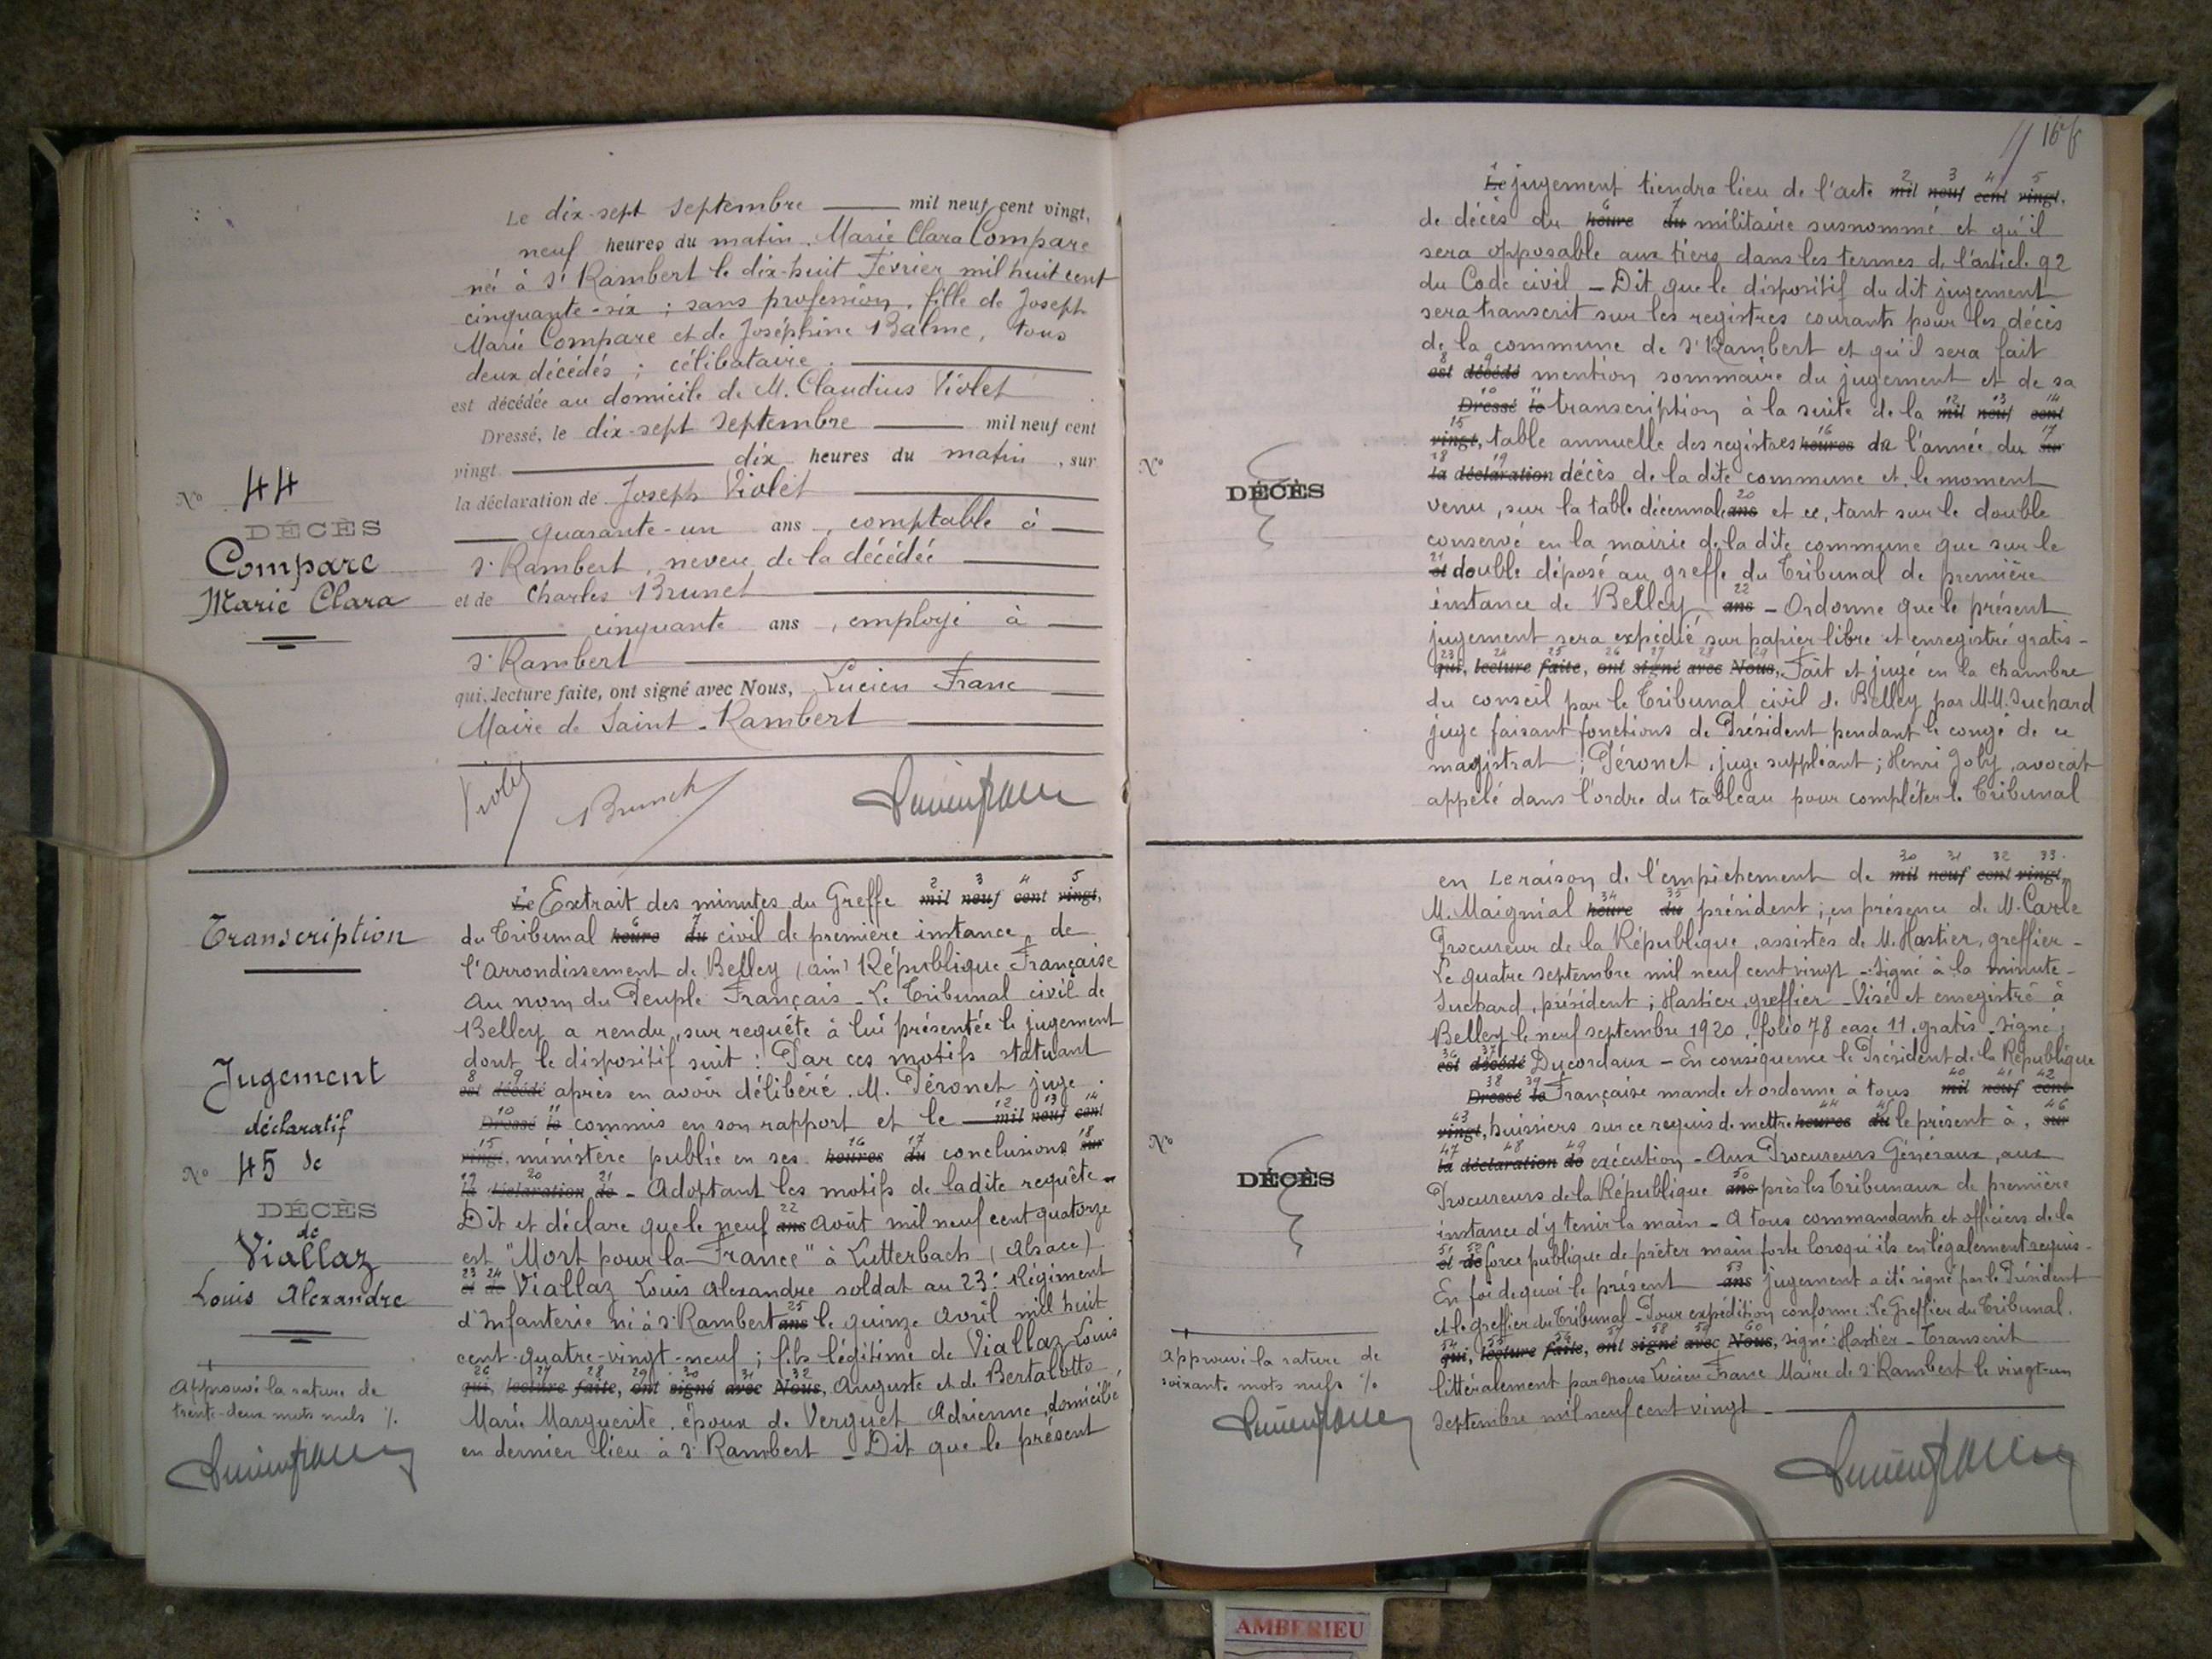 Le dix-sept Septembre mil neuf cent vingt,
neuf heures du matin, Marie Clara Compare
née à St Rambert le dix-huit Février mil huit cent
cinquante-six ; sans profession, fille de Joseph
Marie Compare et de Joséphine Balme, tous
deux décédés ; célibataire.
est décédée au domicile de M. Claudius Violet
Dressé, le dix-sept Septembre mil neuf cent
vingt dix heures du matin, sur
la déclaration de Joseph Violet
quarante-un ans, comptable à
St Rambert, neveu de la décédée
et de Charles Brunet
cinquante ans, employé à
St Rambert
qui, lecture faite, ont signé avec Nous, Lucien Franc
Maire de Saint-Rambert
Violet Brunet Lucien Franc
No 44
DÉCÈS
Compare
Marie Clara
Transcription
Jugement
déclaratif
No 45 de
DÉCÈS
de
Viallaz
Louis Alexandre
Approuvé la rature de
trente-deux mots nuls %.
Lucien Franc
1 2 3 4 5
Le Extrait des minutes du Greffe mil neuf cent vingt,
6 7
du Tribunal heure du civil de première instance de
l'arrondissement de Belley (ain) République Française
Au nom du Peuple Français - Le Tribunal civil de
Belley a rendu, sur requête à lui présentée le jugement
dont le dispositif suit : Par ces motifs statuant
8 9
est décédé après en avoir délibéré. M. Péronet juge
10 11 12 13 14
Dressé le commis en son rapport et le mil neuf cent
15 16 17 18
vingt, ministère public en ses heures du conclusions sur
19 20 21
la déclaration de - Adoptant les motifs de ladite requête -
22
Dit et déclare que le neuf ans Août mil neuf cent quatorze
est "Mort pour la France" à Lutterbach (Alsace)
23 24
et de Viallaz Louis Alexandre soldat au 23e Régiment
25
d'Infanterie né à St Rambert ans le quinze Avril mil huit
cent-quatre-vingt-neuf ; fils légitime de Viallaz Louis
26 27 28 29 30 31 32
qui, lecture faite, ont signé avec Nous, Auguste et de Bertalotto
Marie Marguerite, époux de Verguet Adrienne, domicilié
en dernier lieu à St Rambert - Dit que le présent
1 2 3 4 5
Le jugement tiendra lieu de l'acte mil neuf cent vingt,
6 7
de décès du heure du militaire susnommé et qu'il
sera opposable aux tiers dans les termes de l'articl. 92
du Code civil - Dit que le dispositif du dit jugement
sera transcrit sur les registres courants pour les décès
de la commune de St Rambert et qu'il sera fait
8 9
est décédé mention sommaire du jugement et de sa
10 11 12 13 14
Dressé le transcription à la suite de la mil neuf cent
15 16 17
vingt, table annuelle des registres heures de l'année du sur
18 19
la déclaration décès de la dite commune et, le moment
20
venu, sur la table décennale ans et ce, tant sur le double
conservé en la mairie de la dite commune que sur le
21
et double déposé au greffe du Tribunal de première
22
instance de Belley ans - Ordonne que le présent
jugement sera expédié sur papier libre et enregistré gratis -
23 24 25 26 27 28 29
qui, lecture faite, ont signé avec Nous, Fait et jugé en la chambre
du conseil par le Tribunal civil de Belley par MM. Suchard
juge faisant fonctions de Président pendant le congé de ce
magistrat ; Péronet, juge suppléant ; Henri Joly, avocat
appelé dans l'ordre du tableau pour compléter le Tribunal
No
DÉCÈS
30 31 32 33
en Le raison de l'empêchement de mil neuf cent vingt,
34 35
M. Maignial heure du président ; en présence de M. Carle
Procureur de la République, assistés de M. Hastier, greffier -
Le quatre Septembre mil neuf cent vingt - Signé à la minute -
Suchard, président ; Hastier, greffier - Visé et enregistré à
Belley le neuf septembre 1920, folio 78 case 11, gratis - Signé :
36 37
est décédé Ducordaux - En conséquence le Président de la République
38 39 40 41 42
Dressé le Française mande et ordonne à tous mil neuf cent
43 44 45 46
vingt, huissiers sur ce requis de mettre heures du le présent à, sur
47 48 49
la déclaration de exécution - Aux Procureurs Généraux, aux
50
Procureurs de la République ans près les Tribunaux de première
instance d'y tenir la main - A tous commandants et officiers de la
51 52
et de force publique de prêter main forte lorsqu'ils en légalement requis -
53
En foi de quoi le présent ans jugement a été signé par le Président
et le greffier du Tribunal - Pour expédition conforme : Le Greffier du Tribunal.
54 55 56 57 58 59 60
qui, lecture faite, ont signé avec Nous, Signé : Hastier - Transcrit
littéralement par Nous Lucien Franc Maire de St Rambert le vingt-un
Septembre mil neuf cent vingt -
Lucien Franc
No
DÉCÈS
Approuvé la rature de
soixante mots nuls %.
Lucien Franc
AMBERIEU